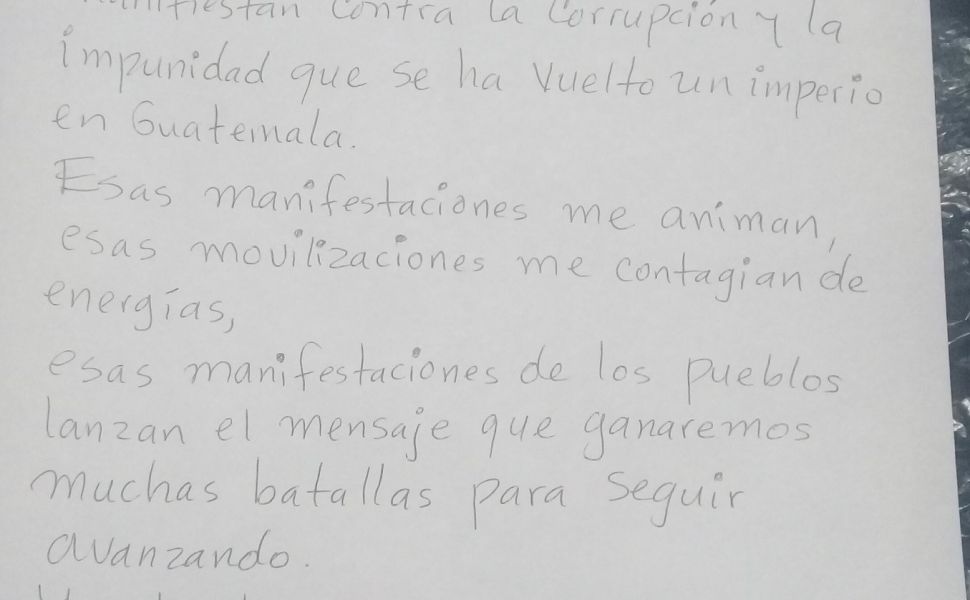 contra la Corrupción y la
impunidad que se ha vuelto un imperio
en Guatemala.
Esas manifestaciones me animan,
esas movilizaciones me contagian de
energías,
esas manifestaciones de los pueblos
lanzan el mensaje que ganaremos
muchas batallas para seguir
avanzando.